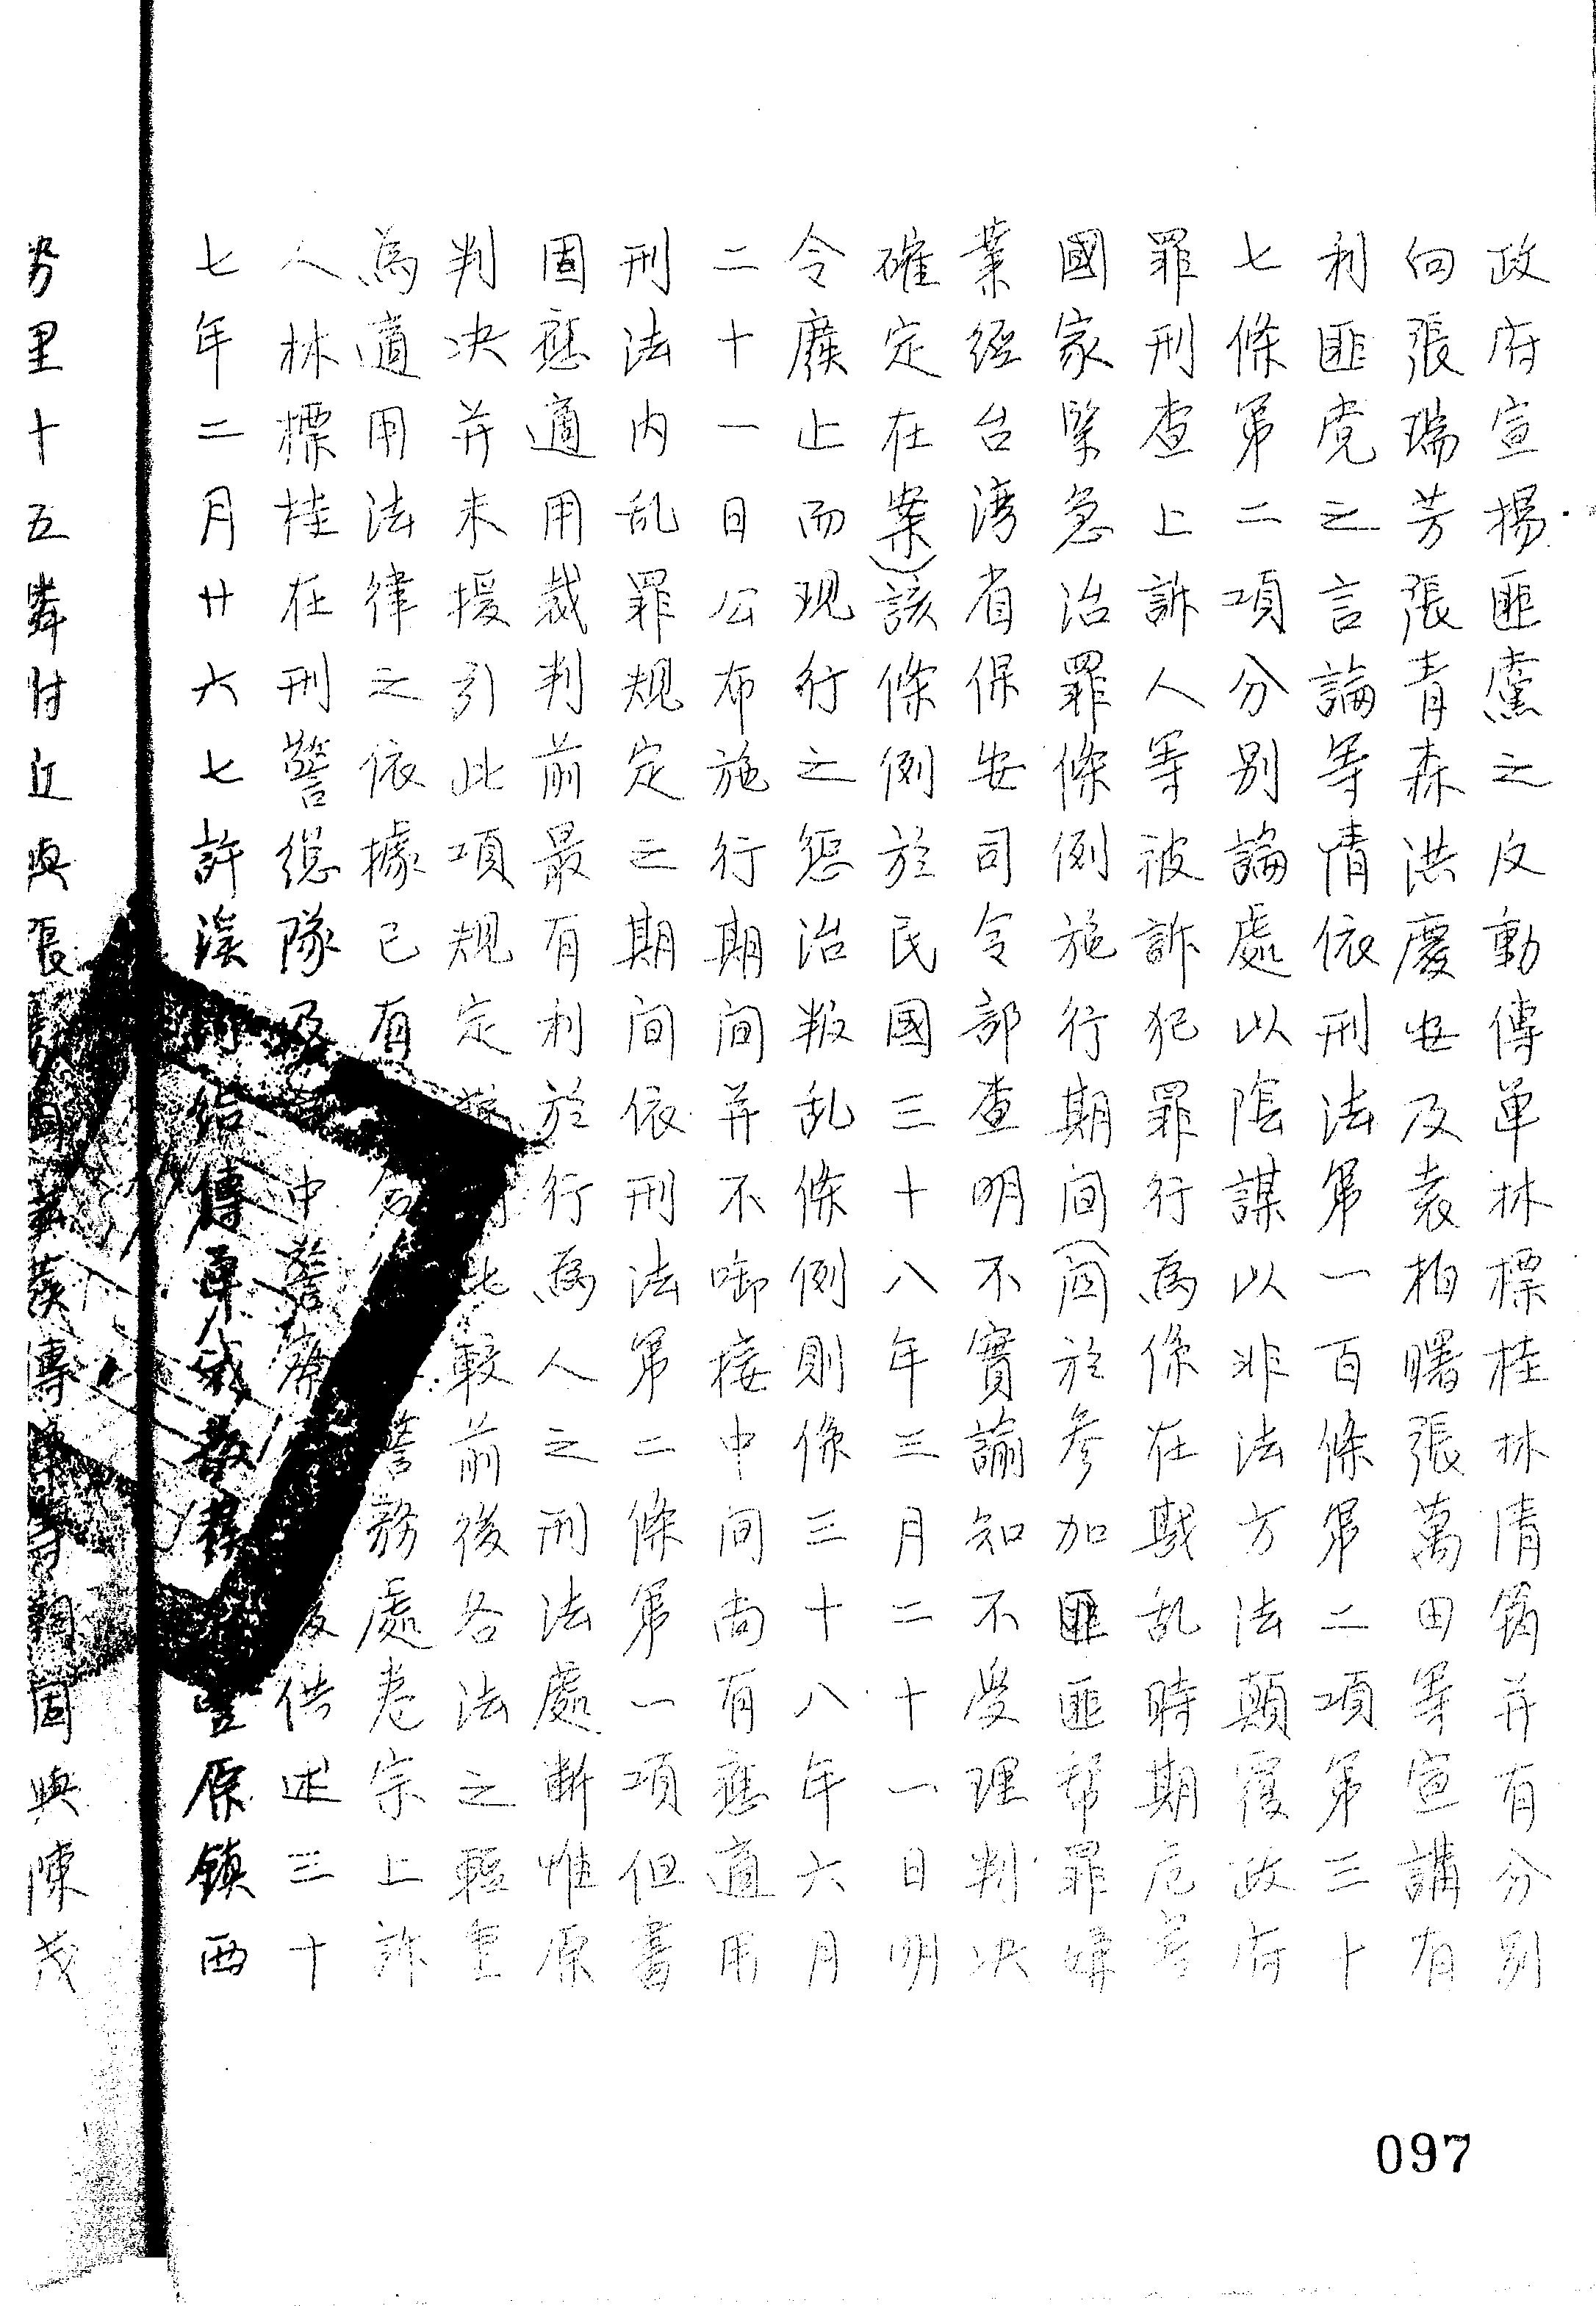 政府宣揚匪黨之反動傳单林標桂林清 并有分别
向張瑞芳張青森洪慶安及袁柏曙張萬田等宣講有
利匪党之言論等情依刑法第一百條第二項第三十
七條第二項分别論處以陰謀以非法方法顛覆政府
罪刑查上訴人等被訴犯罪行為係在戡乱時期危害
國家緊急治罪條例施行期间(囼於参加匪匪帮罪嫌
業經台湾省保安司令部查明不實諭知不受理判决
確定在案)該條例於民國三十八年三月二十一日明
令廢止而现行之惩治叛乱條例則係三十八年六月
二十一日公布施行期间并不啣接中间尚有應適用
刑法内乱罪规定之期间依刑法第二條第一項但書
固應適用裁判前最有利於行為人之刑法處断惟原
判决并未援引此項规定 比較前後各法之輕重
為適用法律之依據已有 警務處卷宗上訴
人林標桂在刑警總隊及 中警 供述三十
七年二月廿六七許漢 給傳单 豐原鎮西
势里十五鄰附近與張 漢傳单 與陳茂
097